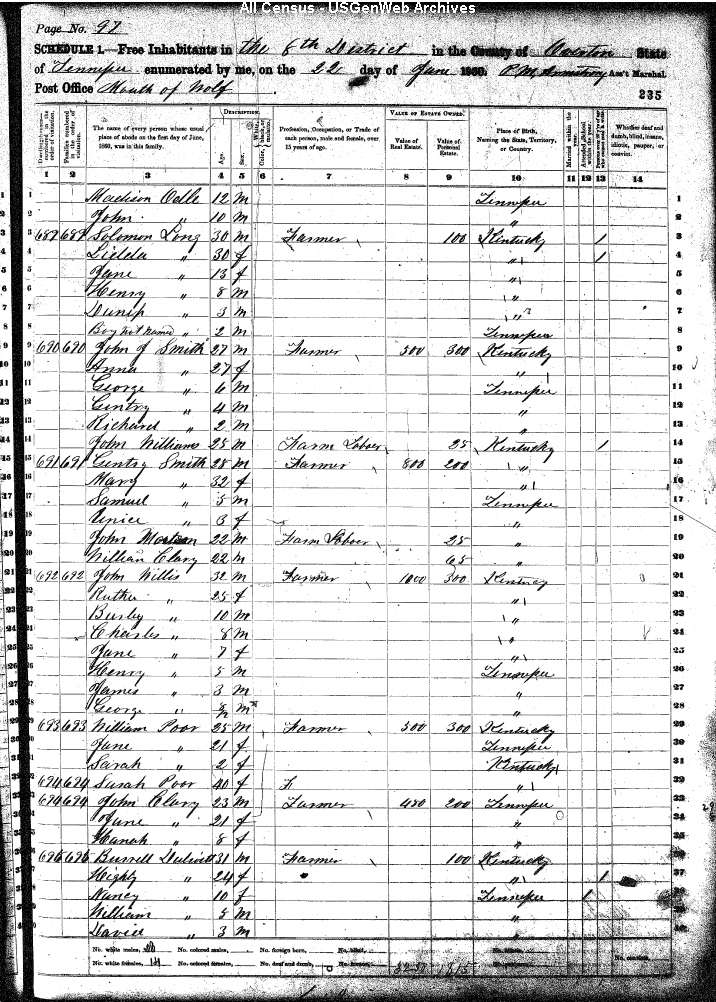 All Census - USGenWeb Archives
Page No. 97
SCHEDULE 1.—Free Inhabitants in the 6th District in the County of Overton State
of Tennessee enumerated by me, on the 22 day of June 1860. P.M. Armstrong Ass't Marshal
Post Office Mouth of Wolf
235
DESCRIPTION. VALUE OF ESTATE OWNED.
Dwelling-houses numbered in the order of visitation. Families numbered in the order of visitation. The name of every person whose usual place of abode on the first day of June, 1860, was in this family. Age. Sex. Color, White, black, or mulatto. Profession, Occupation, or Trade of each person, male and female, over 15 years of age. Value of Real Estate. Value of Personal Estate. Place of Birth, Naming the State, Territory, or Country. Married within the year. Attended School within the year. Whether deaf and dumb, blind, insane, idiotic, pauper, or convict.
1 2 3 4 5 6 7 8 9 10 11 12 13 14
1 Madison 12 M Tennessee 1
2 John " 10 M " 2
3 689 689 Solomon Long 30 M Farmer 100 Kentucky / 3
4 " 30 f " / 4
5 Jane " 13 f " 5
6 Henry " 8 M " 6
7 " 3 M " 7
8 Boy not named " 2 M Tennessee 8
9 690 690 John J Smith 27 M Farmer 300 300 Kentucky 9
10 Anna " 27 f " 10
11 George " 6 M Tennessee 11
12 Gentry " 4 M " 12
13 Richard " 2 M " 13
14 John Williams 25 M Farm Laborer 25 Kentucky / 14
15 691 691 Gentry Smith 28 M Farmer 800 200 " 15
16 Mary " 32 f " 16
17 Samuel " 5 M Tennessee 17
18 " 3 f " 18
19 John 22 M Farm Laborer 25 " 19
20 William Clary 22 M 65 " 20
21 692 692 John Willis 32 M Farmer 1000 300 Kentucky 21
22 " 25 f " 22
23 " 10 M " 23
24 Charles " 8 M " 24
25 Jane " 7 f " 25
26 Henry " 5 M Tennessee 26
27 James " 3 M " 27
28 George " M " 28
29 693 693 William Poor 25 M Farmer 300 300 Kentucky 29
30 Jane " 21 f Tennessee 30
31 Sarah " 2 f Kentucky 31
32 694 694 Sarah Poor 40 f " 32
33 694 694 John Clary 23 M Farmer 400 200 Tennessee 33
34 Jane " 21 f " 34
35 Hanah " 8 f " 35
36 695 695 Burrell 31 M Farmer 100 Kentucky 36
37 " 24 f " / 37
38 Nancy " 10 f Tennessee 1 38
39 William " 5 M " 39
40 David " 3 M " 40
No. white males, No. colored males, No. foreign born, No. blind, No. idiotic,
No. white females, 14 No. colored females, No. deaf and dumb, No. insane, No. convicts,